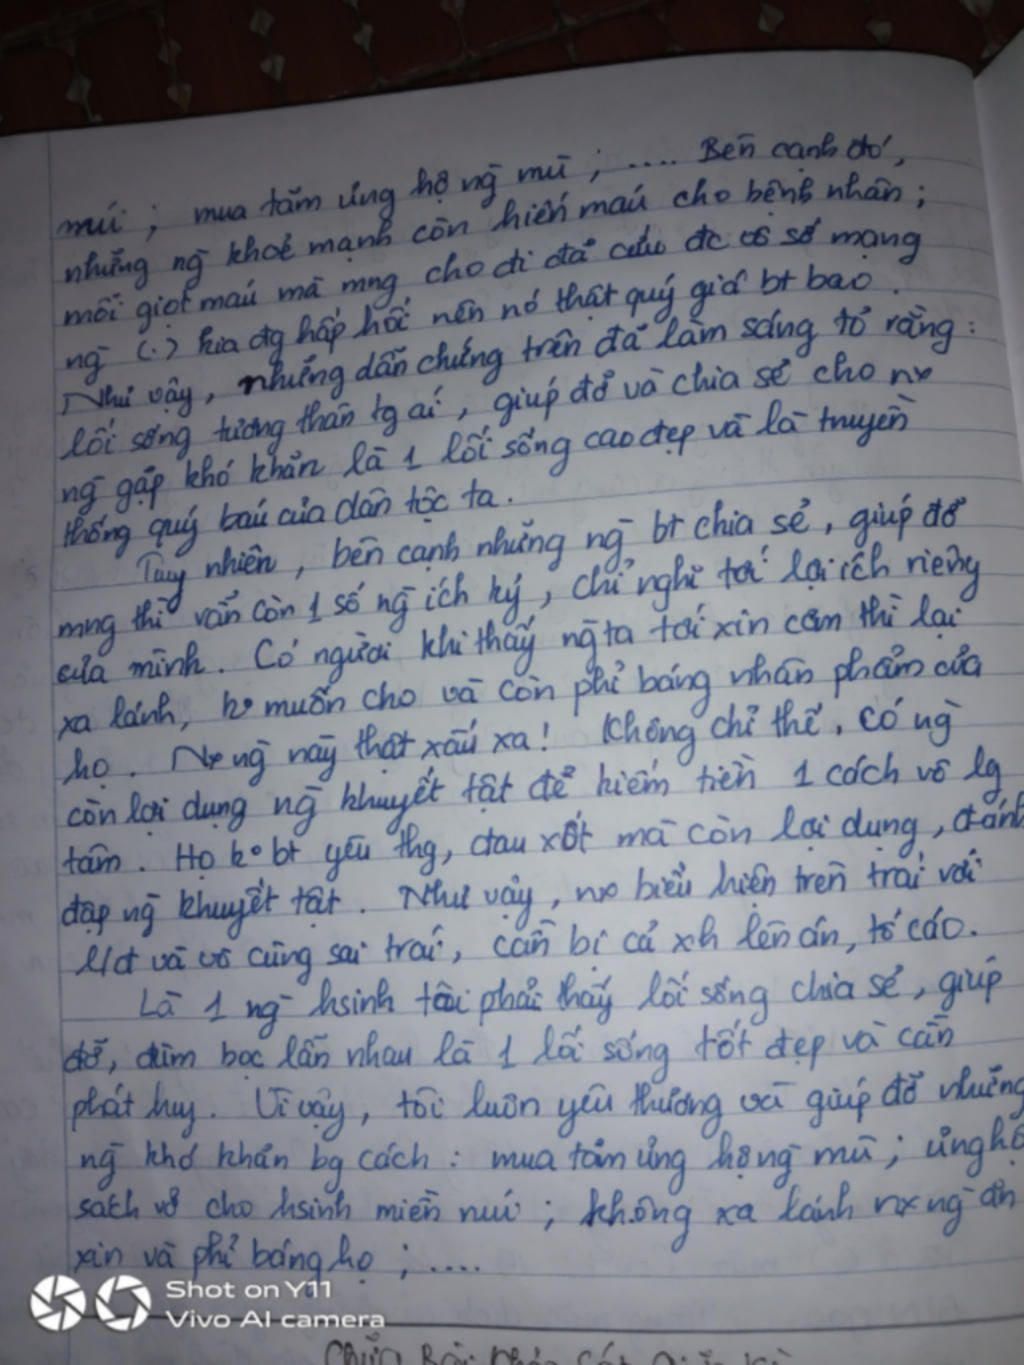 núi ; mua tăm ủng hộ ng̀ mù ; .... Bên cạnh đó,
những ng̀ khoẻ mạnh còn hiến máu cho bệnh nhân ;
mỗi giọt máu mà mng cho đi đã cứu đc số mạng
ng̀ (.) kia đg hấp hối nên nó thật quý giá bt bao.
Như vậy, những dẫn chứng trên đã làm sáng tỏ rằng :
lối sống tương thân tg ái, giúp đỡ và chia sẻ cho nx
ng̀ gặp khó khăn là 1 lối sống cao đẹp và là truyền
thống quý báu của dân tộc ta.
Tuy nhiên, bên cạnh những ng̀ bt chia sẻ, giúp đỡ
mng thì vẫn còn 1 số ng̀ ích kỷ, chỉ nghĩ tới lợi ích riêng
của mình. Có người khi thấy ng̀ ta tới xin cơm thì lại
xa lánh, ko muốn cho và còn phỉ báng nhân phẩm của
họ. Nx ng̀ này thật xấu xa! Không chỉ thế, có ng̀
còn lợi dụng ng̀ khuyết tật để kiếm tiền 1 cách vô lg
tâm. Họ ko bt yêu thg, đau xót mà còn lợi dụng, đánh
đập ng̀ khuyết tật. Như vậy, nx biểu hiện trên trái với
l/đ và vô cùng sai trái, cần bị cả xh lên án, tố cáo.
Là 1 ng̀ hsinh tôi phải thấy lối sống chia sẻ, giúp
đỡ, đùm bọc lẫn nhau là 1 lối sống tốt đẹp và cần
phát huy. Vì vậy, tôi luôn yêu thương và giúp đỡ những
ng̀ khó khăn bg cách : mua tăm ủng hộ ng̀ mù ; ủng hộ
sách vở cho hsinh miền núi ; không xa lánh nx ng̀ ăn
xin và phỉ báng họ ; ....
Shot on Y11
Vivo AI camera